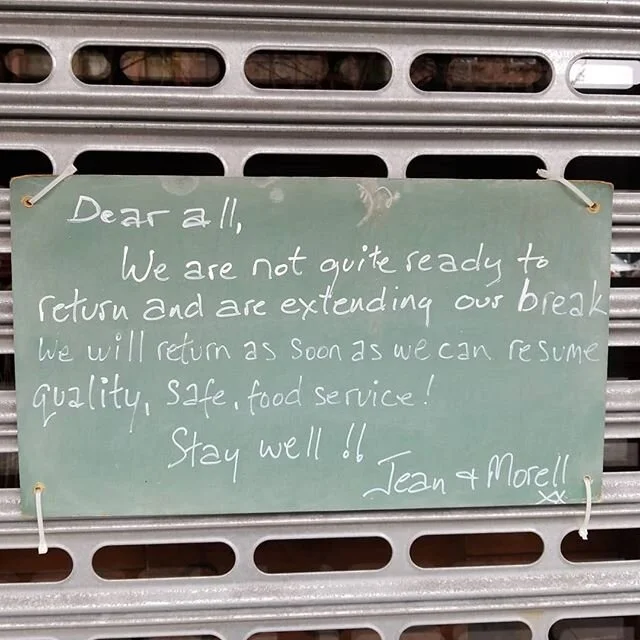 Dear all,
We are not quite ready to
return and are extending our break
We will return as soon as we can resume
quality, safe, food service!
Stay well !!
Jean & Morell
xx